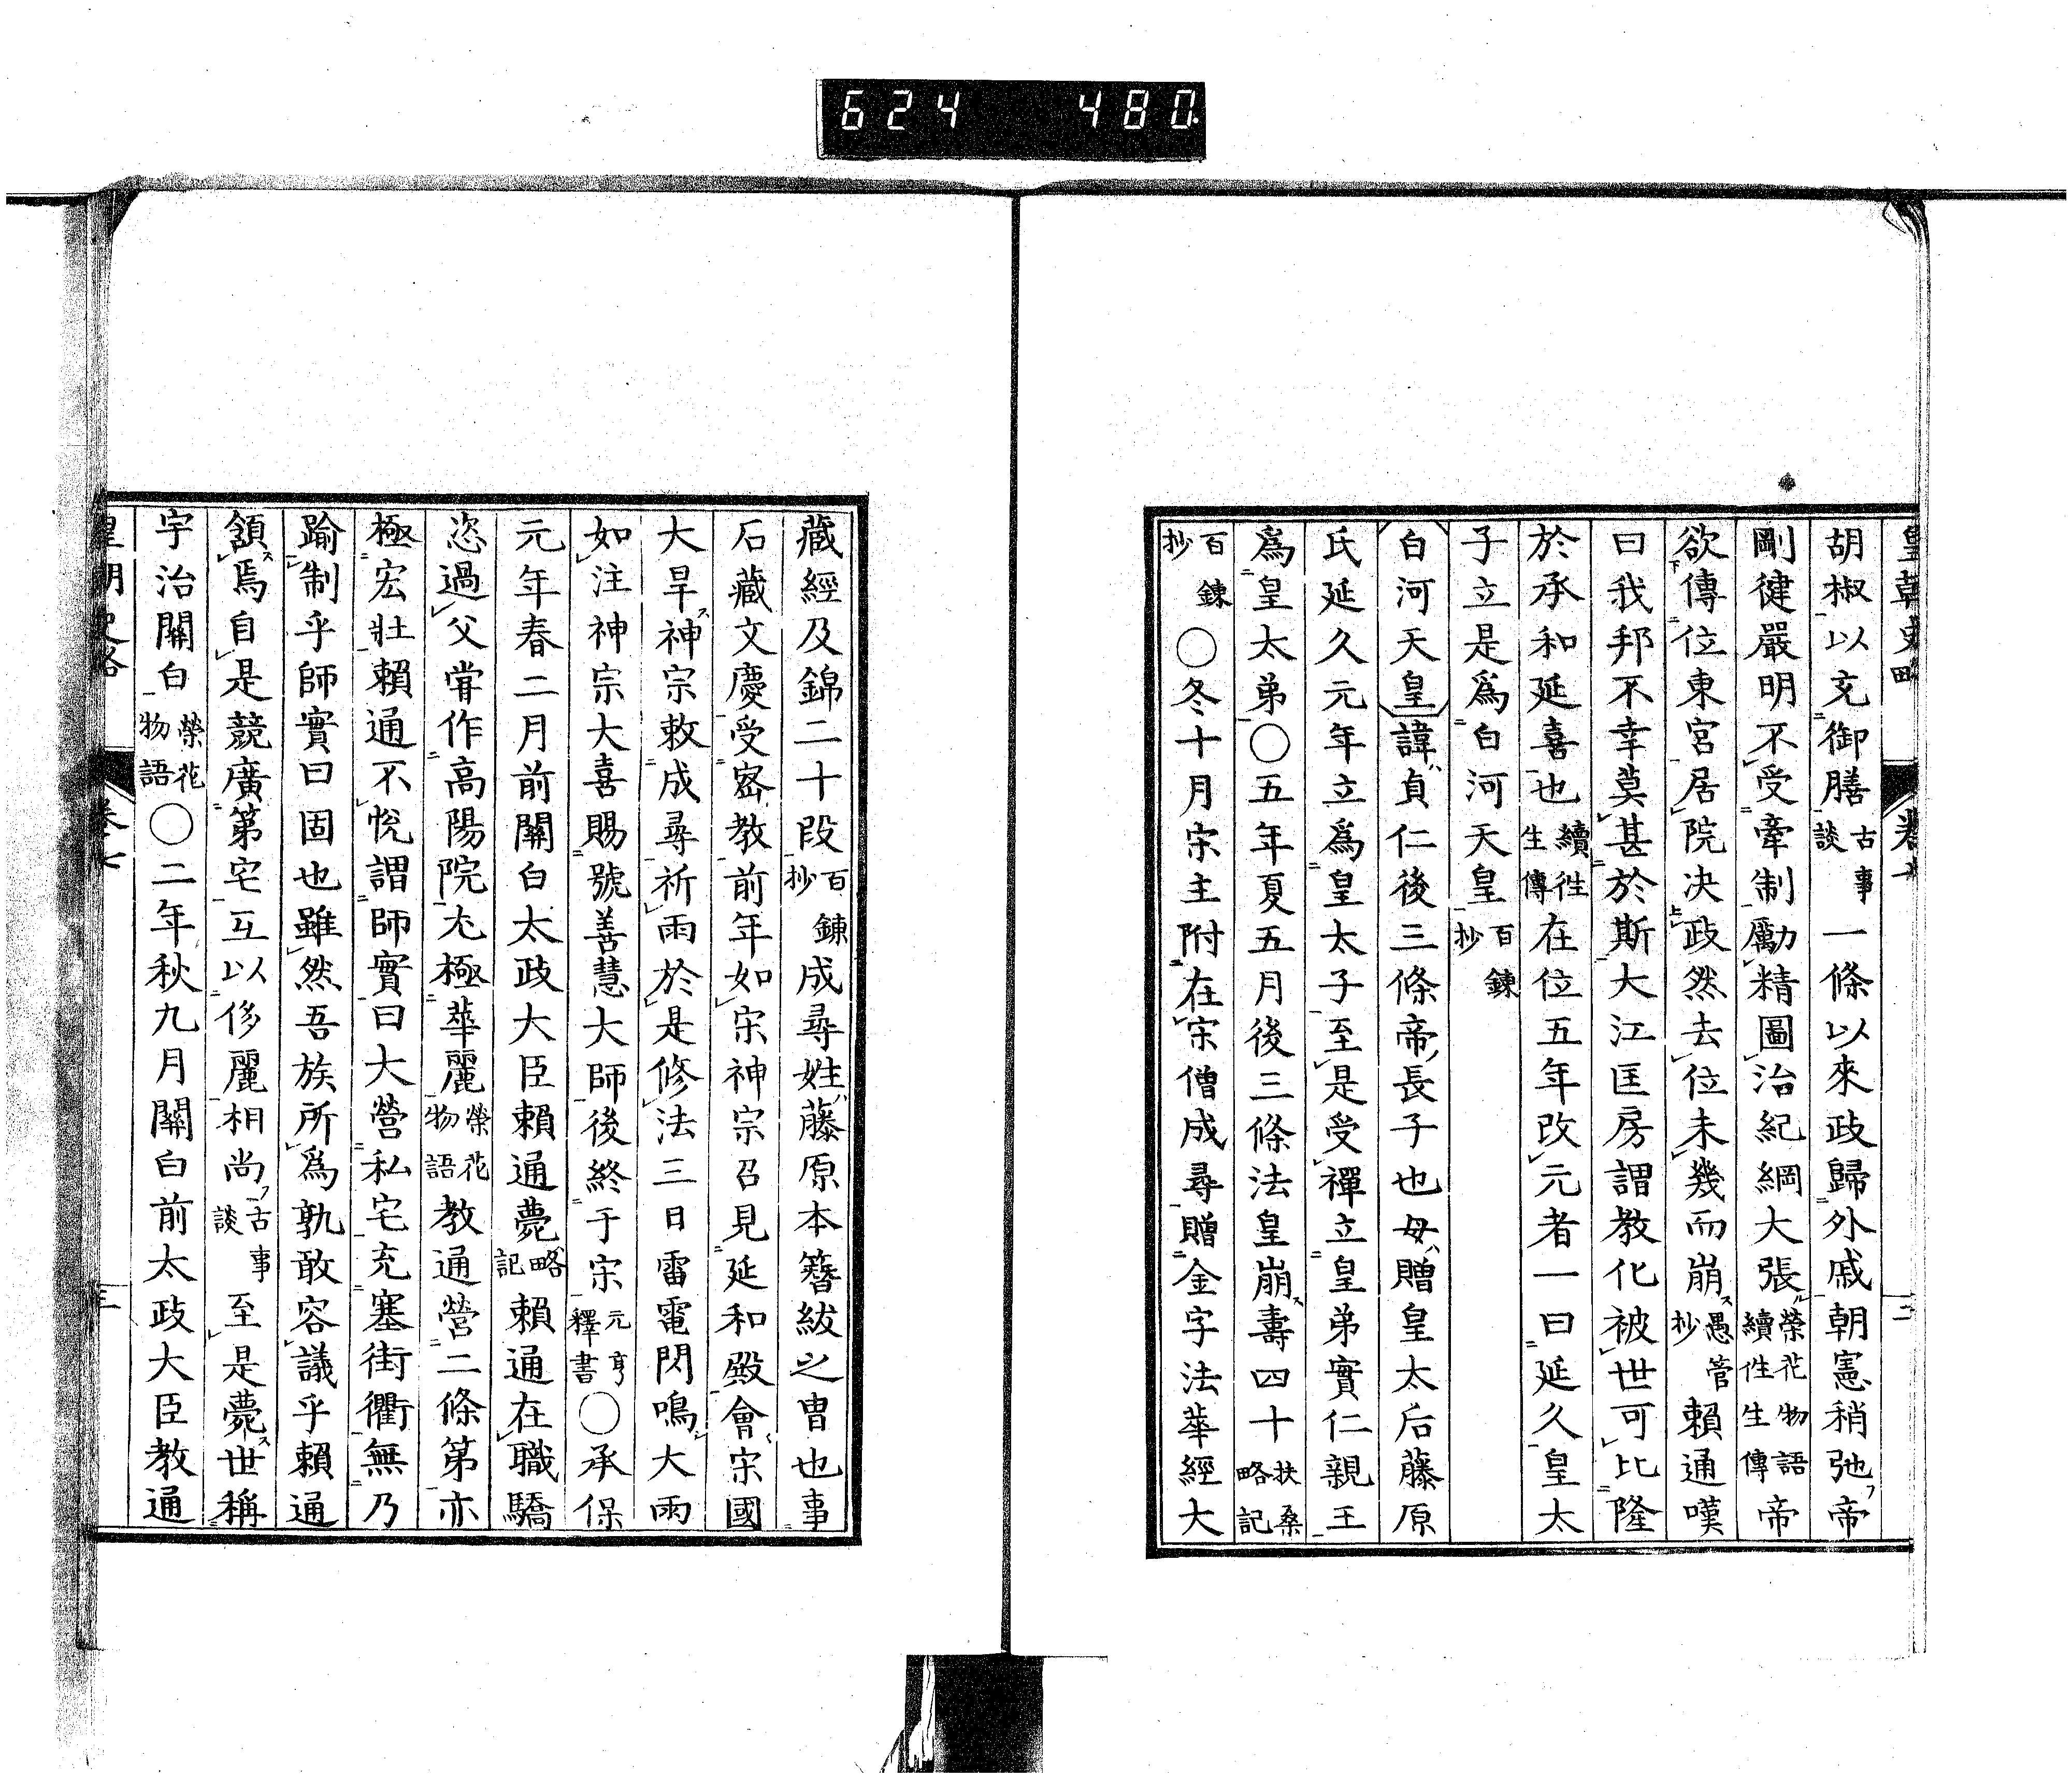 624 480
皇朝史略 卷七 二
胡椒以充御膳古事談一條以來政歸外戚朝憲稍弛帝
剛健嚴明不受牽制勵精圖治紀綱大張榮花物語續徃生傳帝
欲傳位東宮居院决政然去位未幾而崩愚管抄賴通嘆
曰我邦不幸莫甚於斯大江匡房謂教化被世可比隆
於承和延喜也續徃生傳在位五年改元者一曰延久皇太
子立是爲白河天皇百鍊抄
白河天皇諱貞仁後三條帝長子也母贈皇太后藤原
氏延久元年立爲皇太子至是受禪立皇弟實仁親王
爲皇太弟○五年夏五月後三條法皇崩壽四十扶桑略記
百鍊抄○冬十月宋主附在宋僧成尋贈金字法華經大
藏經及錦二十段百鍊抄成尋姓藤原本簪紱之曹也事
石藏文慶受密教前年如宋神宗召見延和殿會宋國
大旱神宗敕成尋祈雨於是修法三日雷電閃鳴大雨
如注神宗大喜賜號善慧大師後終于宋元亨釋書○承保
元年春二月前關白太政大臣賴通薨略記賴通在職驕
恣過父甞作高陽院尢極華麗榮花物語教通營二條第亦
極宏壯賴通不悅謂師實曰大營私宅充塞街衢無乃
踰制乎師實曰固也雖然吾族所爲孰敢容議乎賴通
頷焉自是競廣第宅互以侈麗相尚古事談至是薨世稱
宇治關白榮花物語○二年秋九月關白前太政大臣教通
皇朝史略 卷七 三